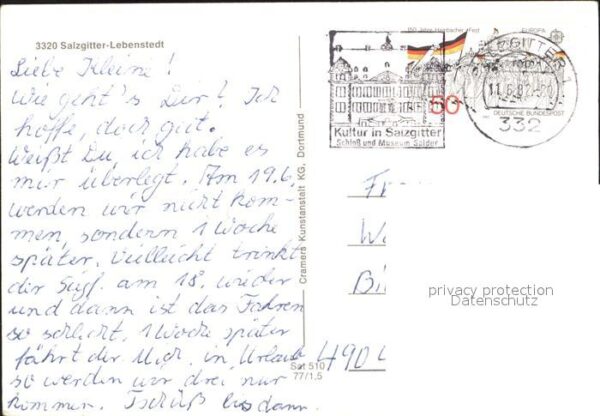 3320 Salzgitter-Lebenstedt
Liebe Kleine!
Wie geht's Dir? Ich
hoffe, doch gut.
Weißt Du, ich habe es
mir überlegt. Am 19.6.
werden wir nicht kom-
men, sondern 1 Woche
später. Vielleicht trinkt
der am 18. wieder
und dann ist das Fahren
so schlecht. 1 Woche später
fährt der Mich. in Urlaub
so werden wir drei nur
kommen. Tschüß bis dann.
Cramers Kunstanstalt KG, Dortmund
Sat 510
77/1,5
150 Jahre Hambacher Fest
EUROPA
50
DEUTSCHE BUNDESPOST
Kultur in Salzgitter
Schloß und Museum Salder
SALZGITTER 1
11.6.82
332
Fr
W
Bi
490
privacy protection
Datenschutz